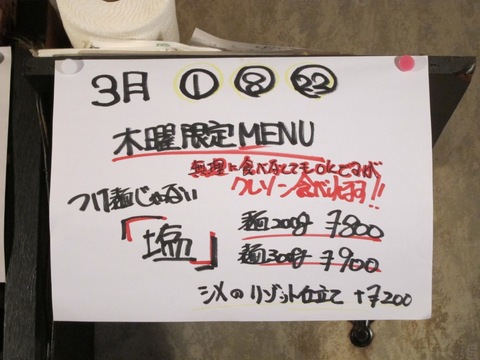 3月 ① ⑧ ㉒
木曜限定MENU
無理に食べなくてもOKですが
クレソン食べれます!!
つけ麺じゃない
「塩」
麺200g ¥800
麺300g ¥900
シメのリゾット仕立て +¥200